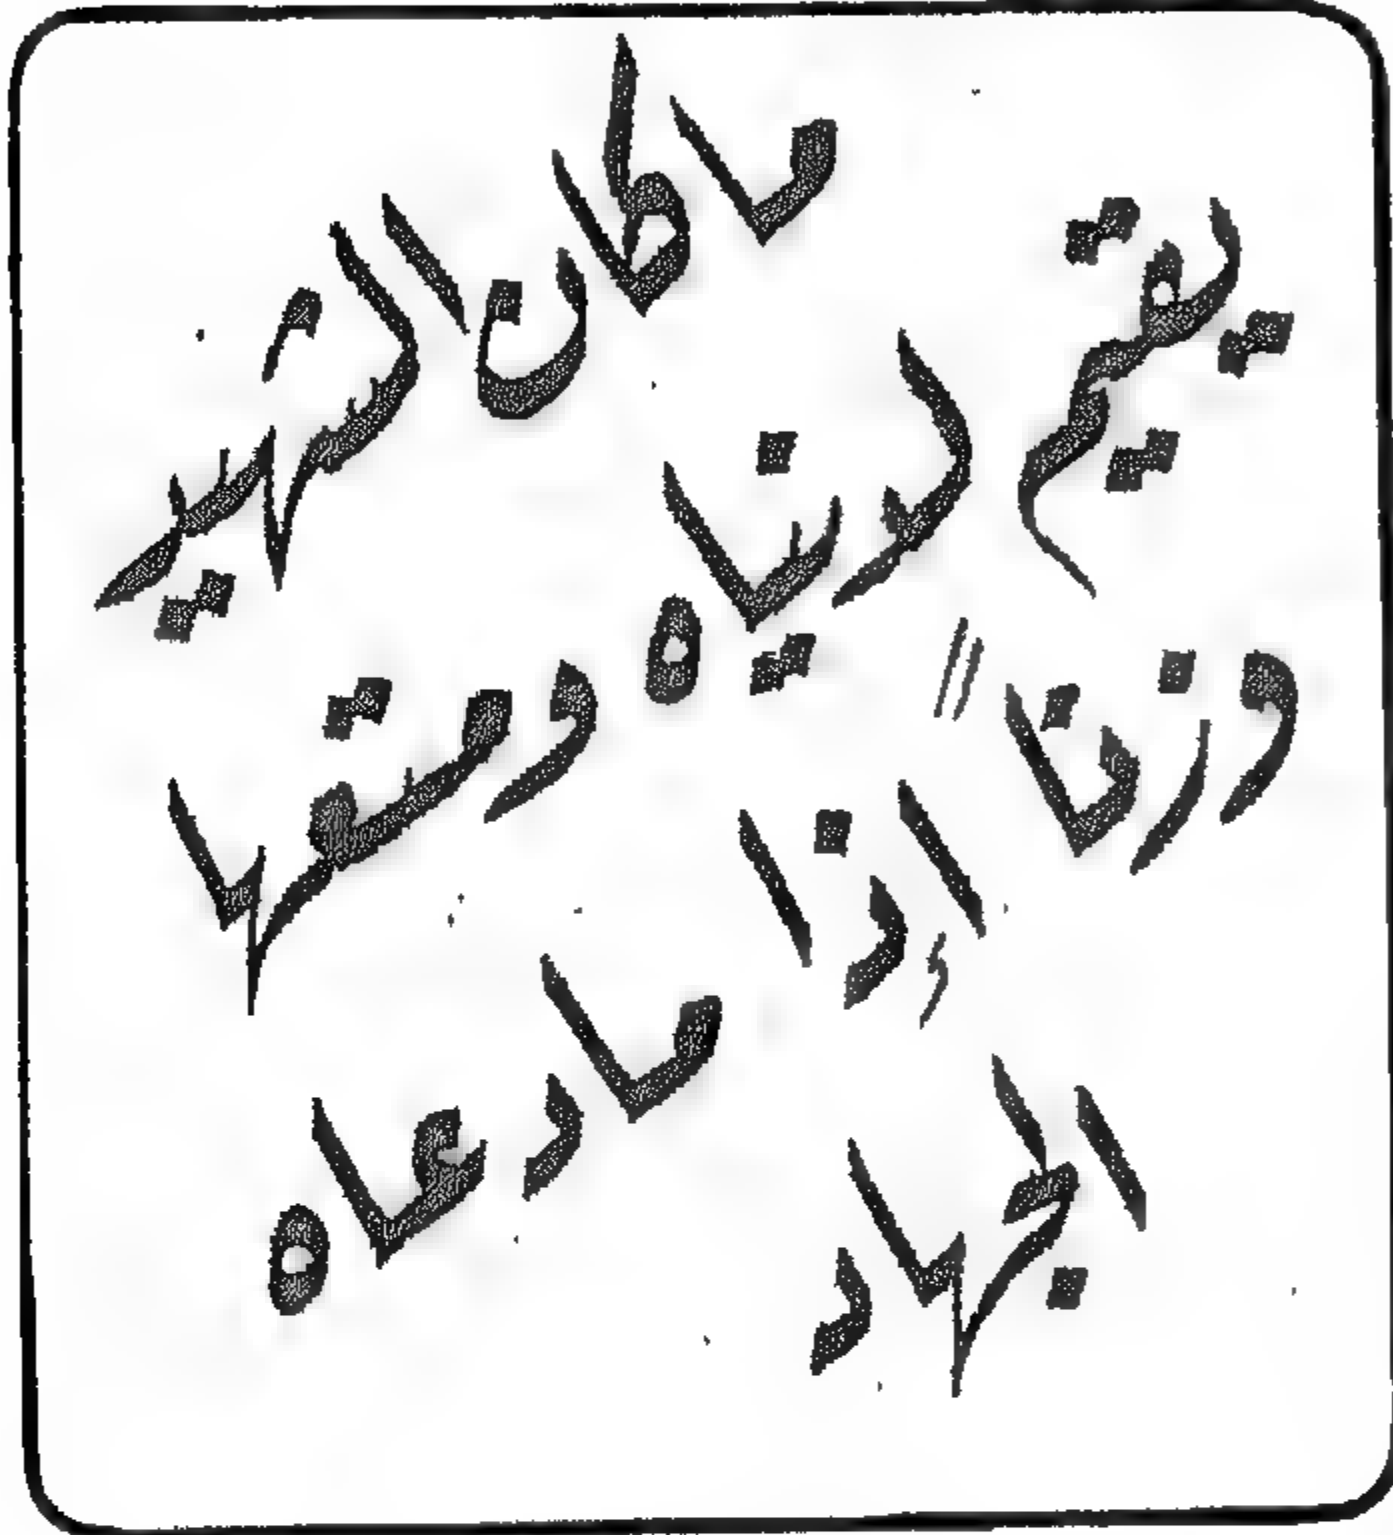 ما كان الشهيد
يقيم لدنياه ومتعها
وزناً إذا ما دعاه
الجهاد